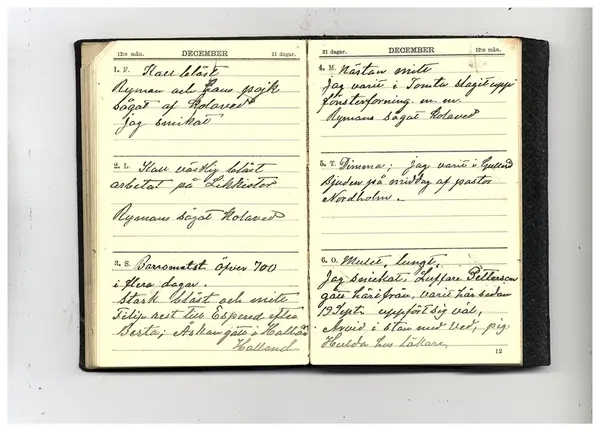 12:e mån. DECEMBER 31 dagar.
1. F. Kall blåst
Ryman och hans pojk
sågat af Kolaved
jag snickat
2. L. Kall västlig blåst
arbetat på Likkistor
Rymans sågat Kolaved
3. S. Barromatet öfver 700
i flera dagar.
Stark blåst och mitt
Filip rest till Espered efter
Berta; Åskan gått i Halland
Halland
31 dagar. DECEMBER 12:e mån.
4. M. Nästan mitt
Jag varit i Tomta slagit upp
fönsterforning m. m.
Rymans sågat Kolaved
5. T. Dimma; jag varit i
Bjuden på middag af pastor
Nordholm.
6. O. Mulet, lungt,
Jag snickat, Luffare Petterson
gått härifrån, varit här sedan
19 Sept. uppfört sig väl,
Arvid i stan med Ved, pig.
Hulda hos läkare,
12